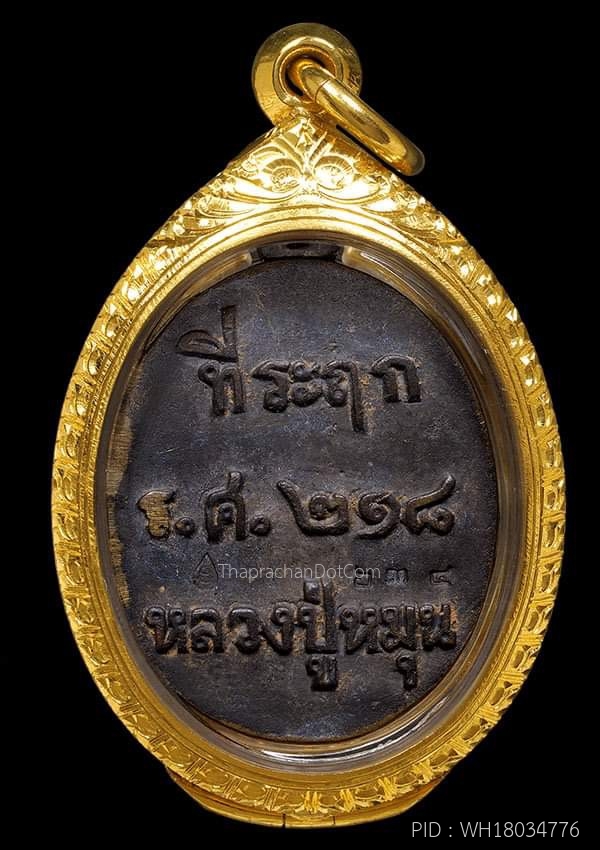 ที่ระฤก
ร.ศ. ๒๑๘
ThaprachanDotCom
๒๓๔
หลวงปู่หมุน
PID : WH18034776